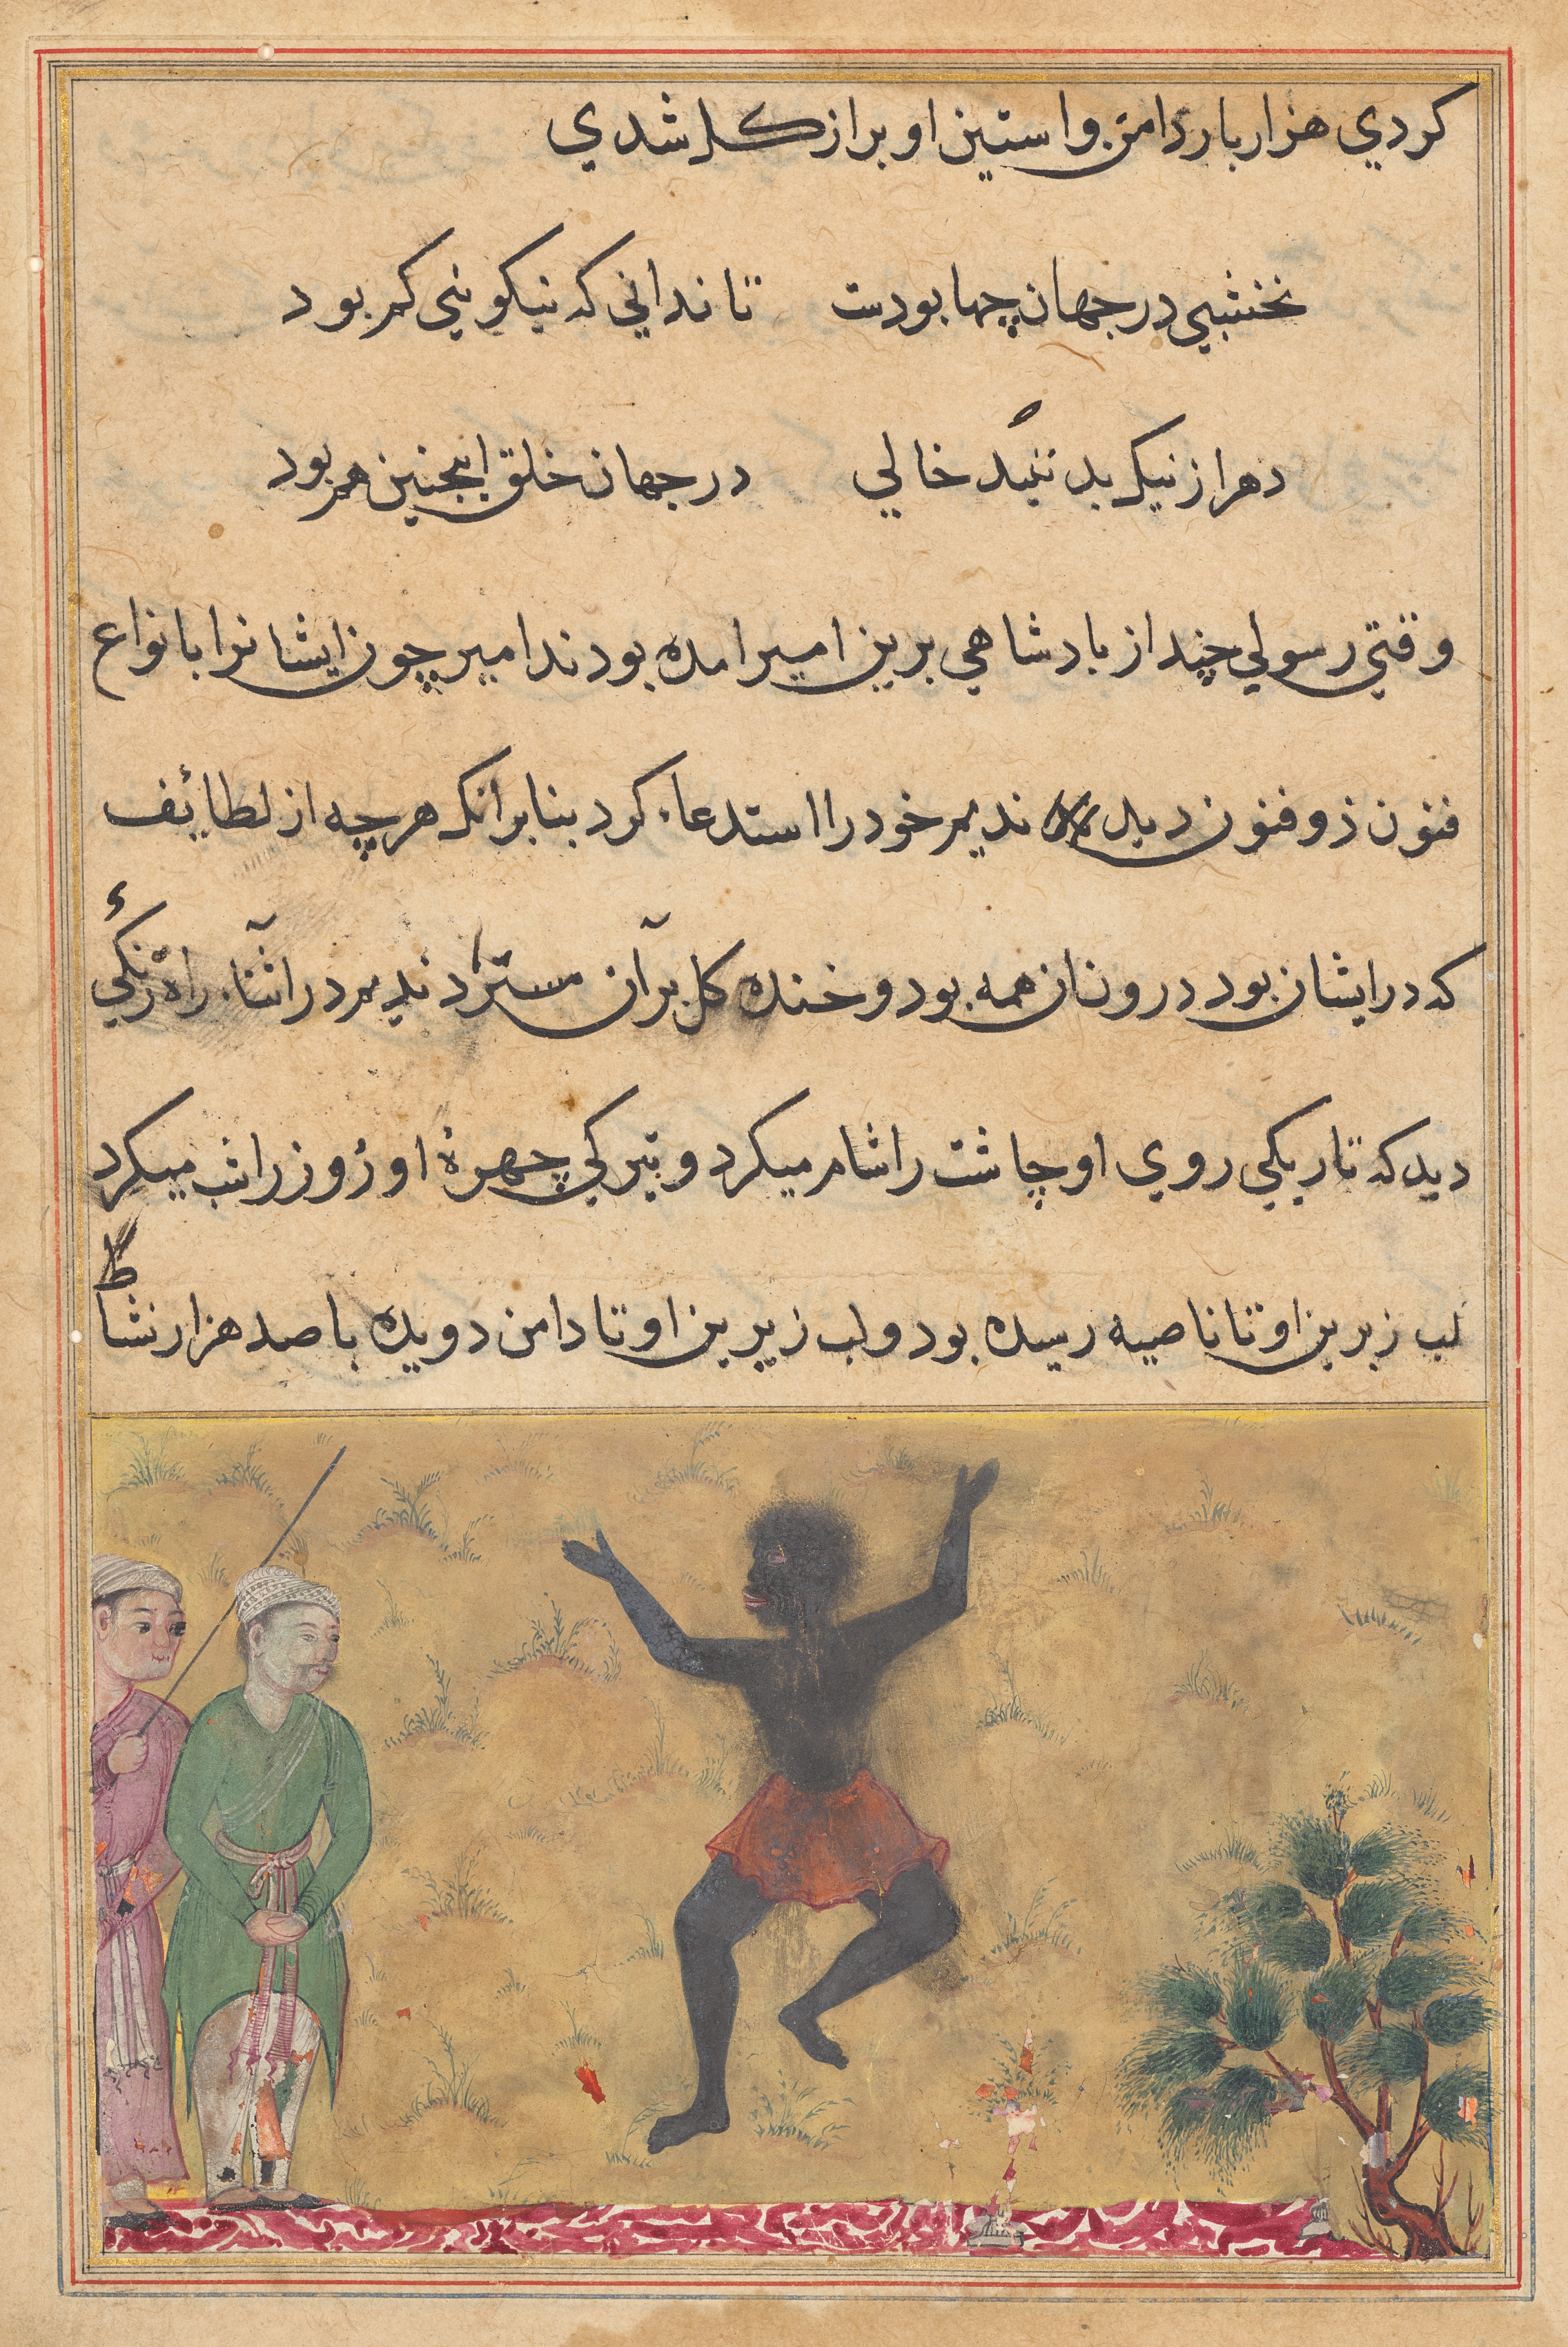 كردي هزار بار دامن و استين او براز كل شدي
نخشبي در جهان چها بودست تا نداني كه نيكويي كم بود
دهر از نيك بد نبُد خالي در جهان خلق اينچنين هم بود
وقتي رسولي چند از بادشاهي برين امير امده بودند امير چون ايشانرا با نواع
فنون ذو فنون ديد نديم خود را استدعاء كرد بنابرانك هرچه از لطايف
كه در ايشان بود در ون از همه بود و خنده كل بر آن مستزاد نديم در اثناء راه زنكيئ
ديد كه تاريكي روي او چاشت را شام ميكرد و تيركي چهرۀ او روز را شب ميكرد
لب زبرين او تا ناصيه رسيده بود و لب زيرين او تا دامن دويده با صد هزار نشاط